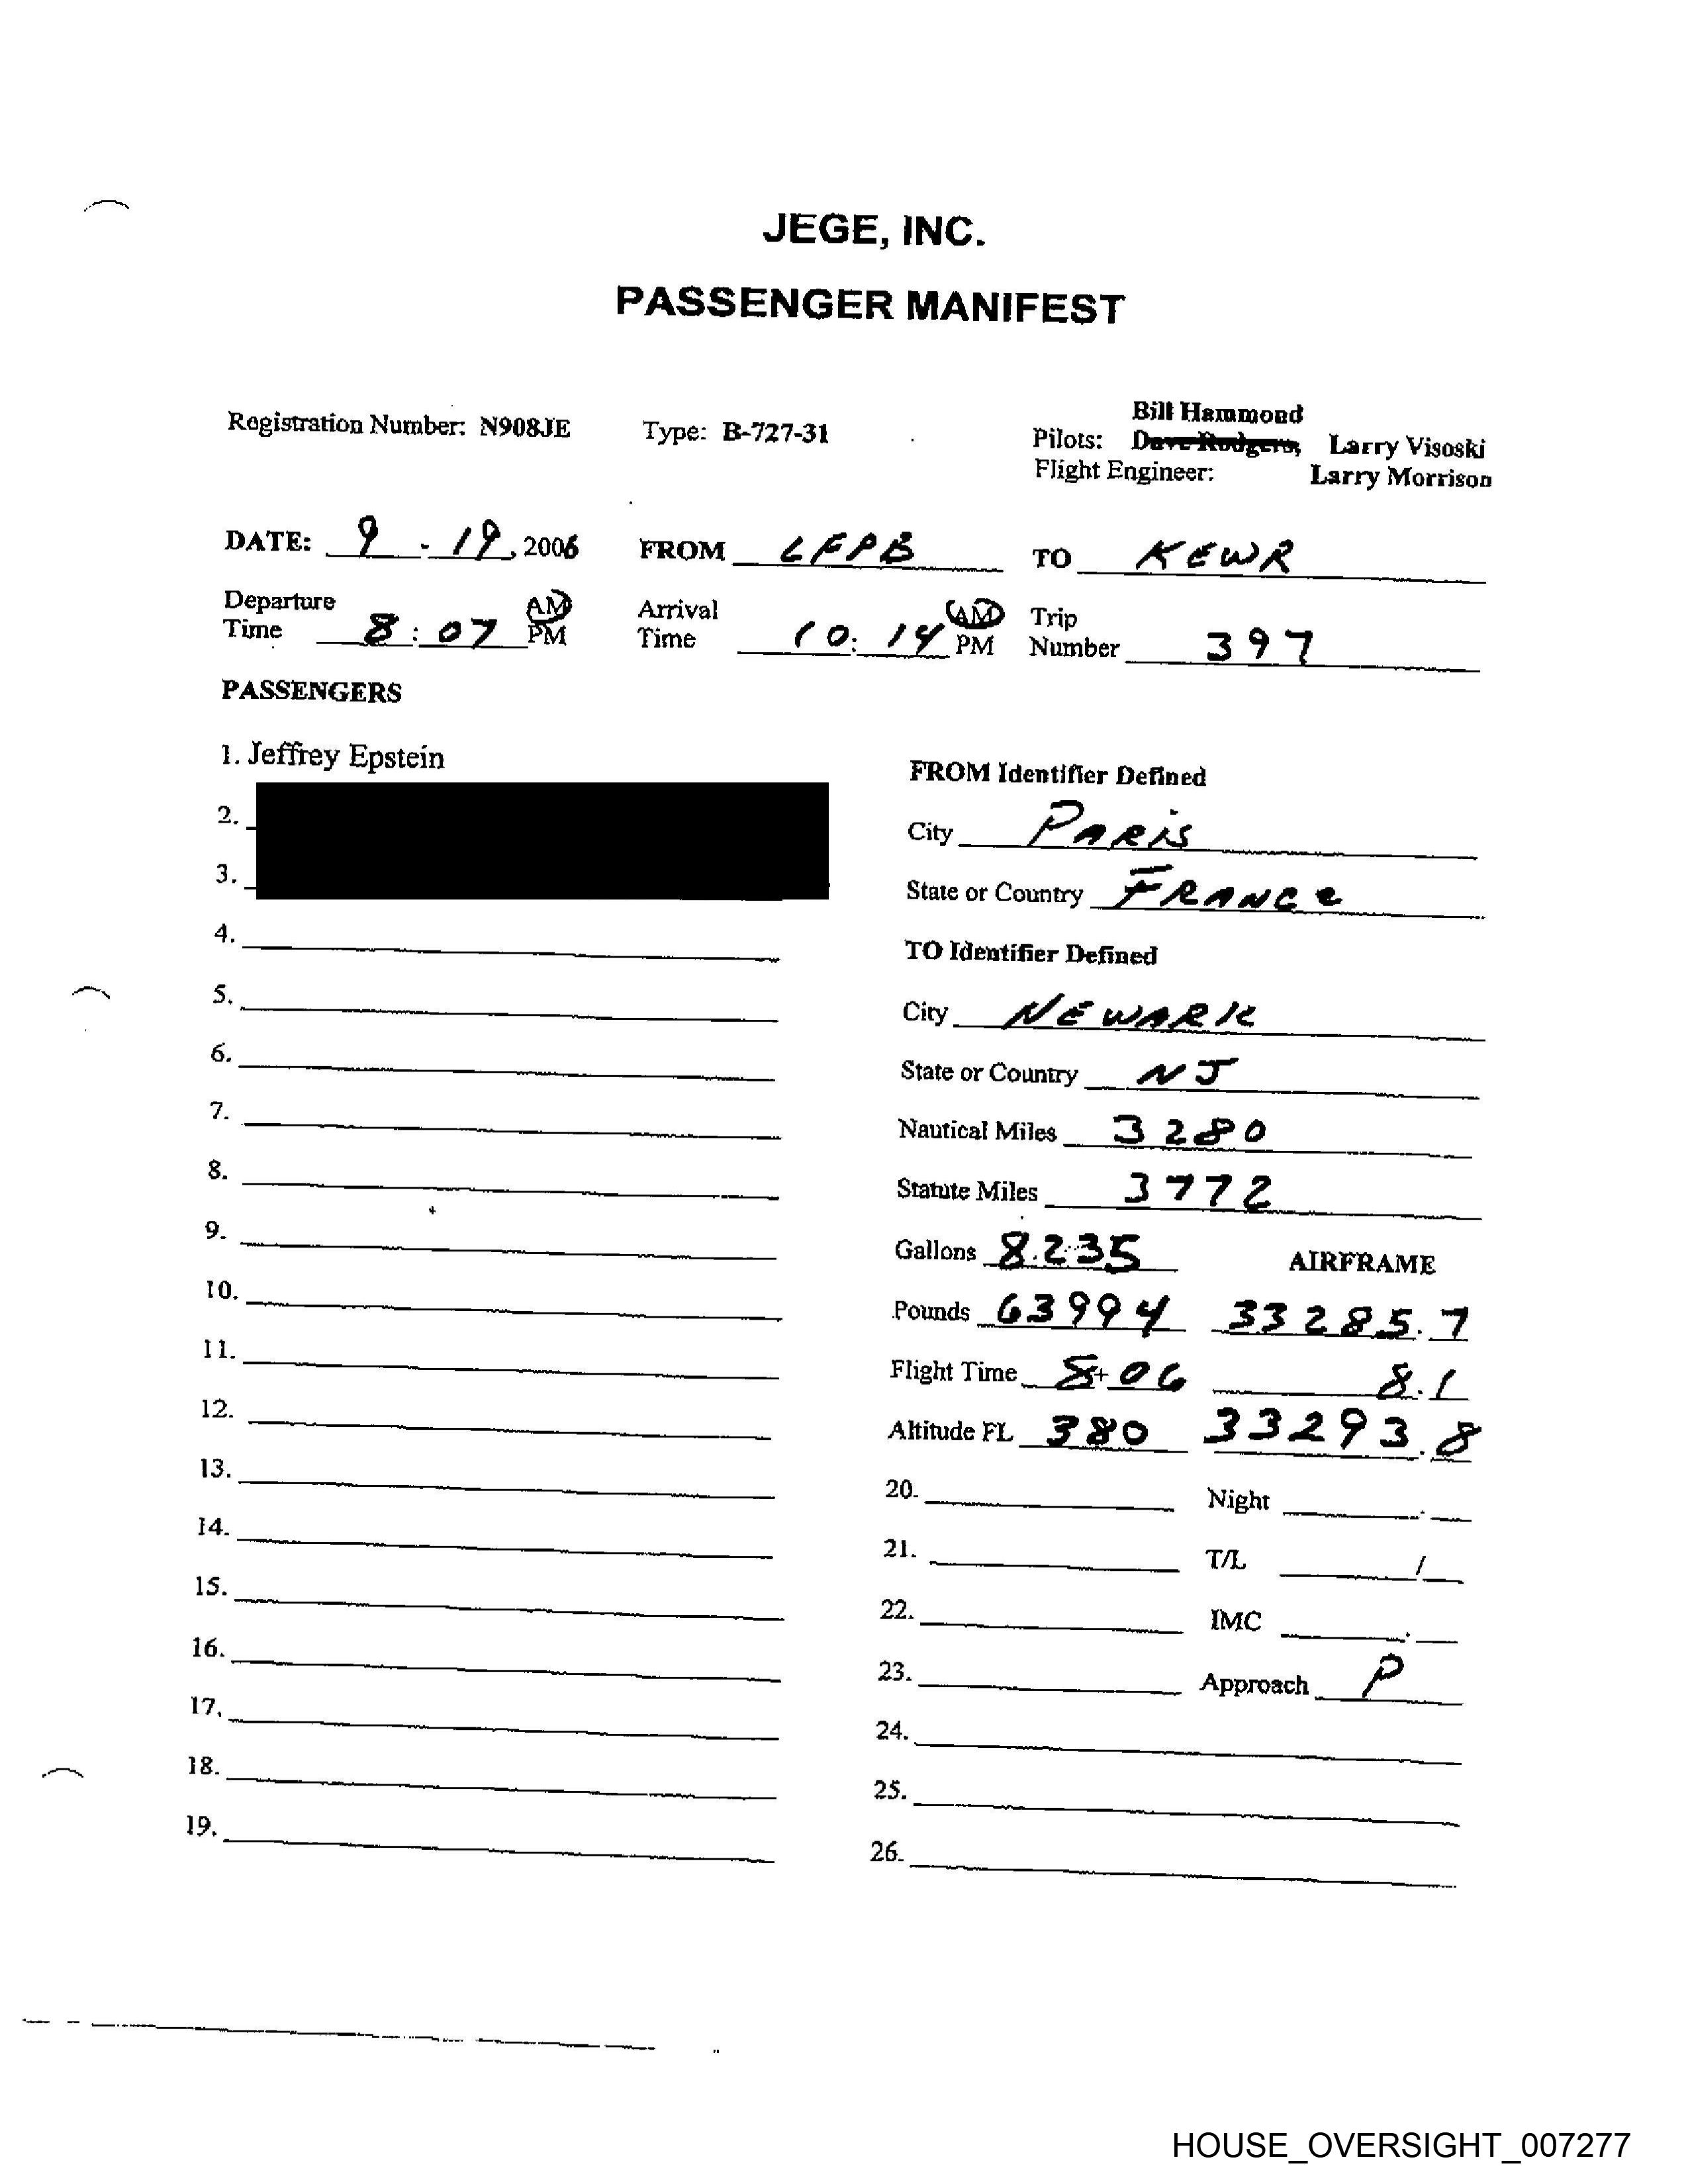 JEGE, INC.
PASSENGER MANIFEST
Bill Hammond
Registration Number: N908JE Type: B-727-31 Pilots: Dave Rodgers, Larry Visoski
Flight Engineer: Larry Morrison
DATE: 9 - 19, 2006 FROM LFPB TO KEWR
Departure Time 8:07 AM PM Arrival Time 10:14 AM PM Trip Number 397
PASSENGERS
1. Jeffrey Epstein
FROM Identifier Defined
2.
City PARIS
3.
State or Country FRANCE
4.
TO Identifier Defined
5.
City NEWARK
6.
State or Country NJ
7.
Nautical Miles 3280
8.
Statute Miles 3772
9.
Gallons 8235 AIRFRAME
10.
Pounds 63994 33285.7
11.
Flight Time 8+06 8.1
12.
Altitude FL 380 33293.8
13.
20. Night
14.
21. T/L /
15.
22. IMC
16.
23. Approach P
17.
24.
18.
25.
19.
26.
HOUSE_OVERSIGHT_007277